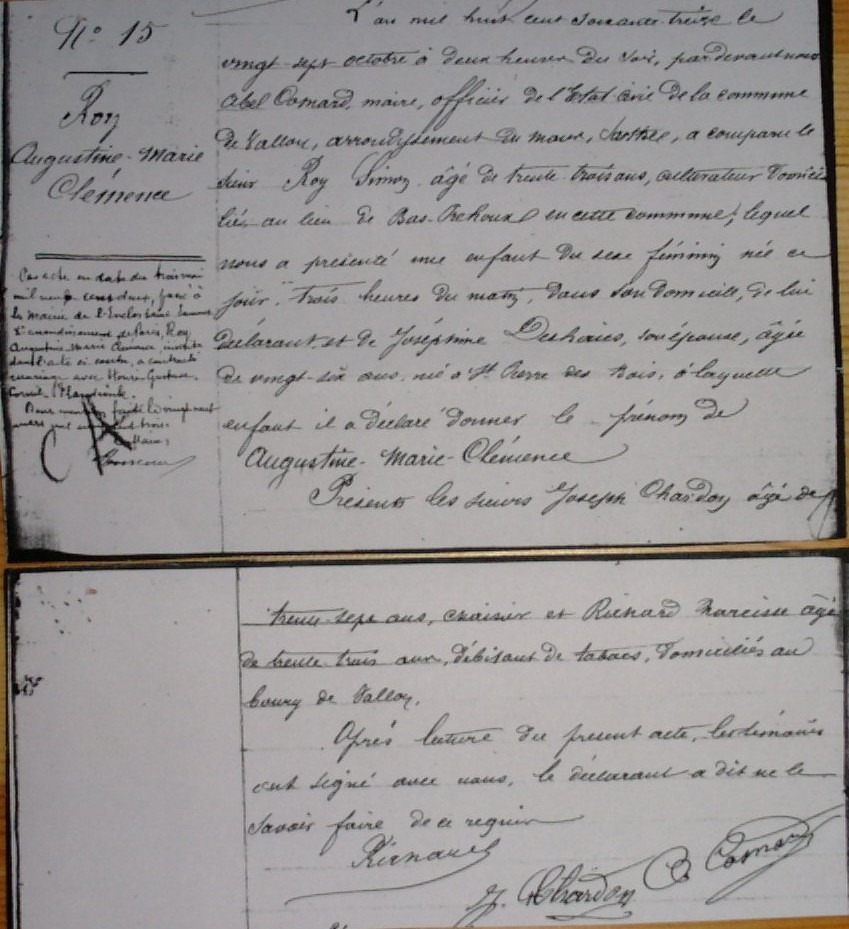 N° 15
Roy
Augustine-Marie
Clémence
L'an mil huit cent soixante treize le
vingt-sept octobre à deux heures du soir, pardevant nous
Abel Comard, maire, officier de l'Etat-civil de la commune
de Vallon, arrondissement du mans, Sarthe, a comparu le
sieur Roy Simon âgé de trente-trois ans, cultivateur domici
lié au lieu de Bas- en cette commune, lequel
nous a présenté une enfant du sexe féminin née ce
jour, trois heures du matin, dans son domicile, de lui
déclarant et de Joséphine Deshaies, son épouse, âgée
de vingt-six ans, née à St Pierre des Bois, à laquelle
enfant il a déclaré donner le prénom de
Augustine-Marie-Clémence
Présents les sieurs Joseph Chardon âgé de
Par acte en date du trois mai
mil neuf cent deux, passé à
la Mairie de l'Enclos
arrondissement de Paris, Roy
Augustine Marie Clémence inscrite
dans l'acte ci contre, a contracté
mariage avec Henri Gustave
Pour mention faite le vingt neuf
mars mil neuf cent trois
Le Maire,
trente-sept ans, chaisier et Richard Narcisse âgé
de trente-trois ans, débitant de tabacs, domiciliés au
bourg de Vallon.
Après lecture du présent acte, les témoins
ont signé avec nous, le déclarant a dit ne le
savoir faire de ce requis
Richard
J. Chardon
A Comard